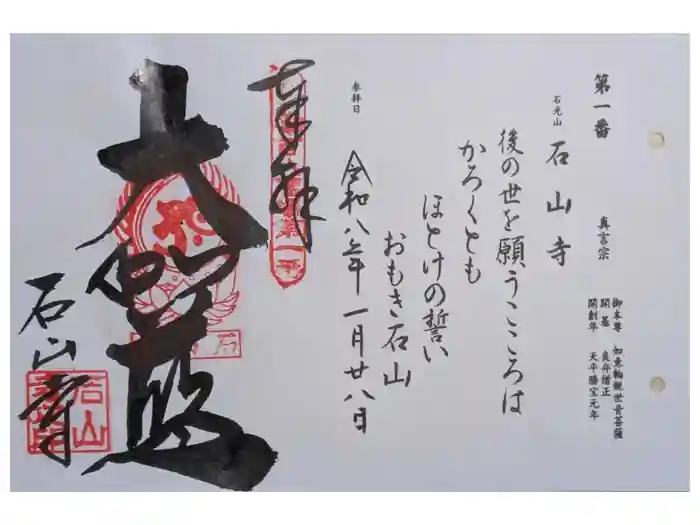 第一番
真言宗
御本尊 如意輪観世音菩薩
開基 良弁僧正
開創年 天平勝宝元年
石光山 石山寺
後の世を願うこころは
かろくとも
ほとけの誓い
おもき石山
参拝日 令和八年一月廿八日
奉拝
大伽藍
石山寺